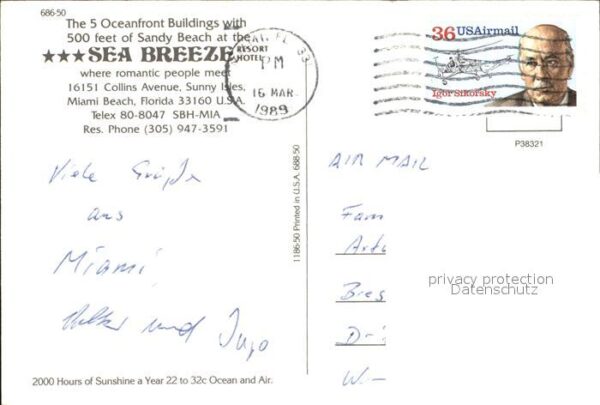 686-50
The 5 Oceanfront Buildings with
500 feet of Sandy Beach at the
★★★SEA BREEZE RESORT HOTEL
where romantic people meet
16151 Collins Avenue, Sunny Isles,
Miami Beach, Florida 33160 U.S.A.
Telex 80-8047 SBH-MIA
Res. Phone (305) 947-3591
FL 33
PM
16 MAR
1989
36 USAirmail
Igor Sikorsky
P38321
1186-50 Printed in U.S.A. 688-50
Viele Grüße
aus
Miami
Volker und Ingo
AIR MAIL
Fam
privacy protection
Datenschutz
Bres
D
W
2000 Hours of Sunshine a Year 22 to 32c Ocean and Air.